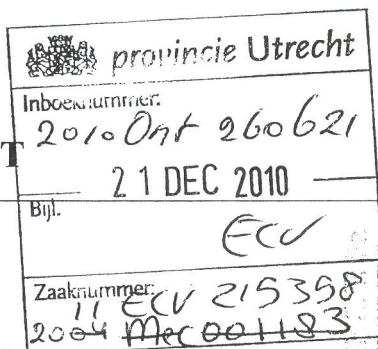 provincie Utrecht
Inboeknummer:
2010Ont 260621
T
21 DEC 2010
Bijl.
ECV
Zaaknummer:
11 ECV 215398
2004 Mec001183